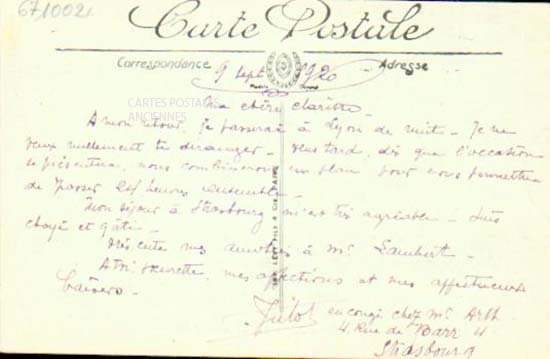 671002
Carte Postale
Correspondance
Adresse
9 Sept 1920
CARTES POSTALES
ANCIENNES
Ma chère Clarisse
A mon retour, je passerai à Lyon de nuit - Je ne
veux nullement te déranger - Plus tard, dès que l'occasion
se présentera, nous combinerons un plan pour nous permettre
de passer 24 heures ensemble -
Mon séjour à Strasbourg m'est très agréable - Suis
choyé et gâté -
à Mr Lambert -
mes affections et mes affectueux
baisers -
en congé chez Mr
4 Rue de Barr 4
Strasbourg